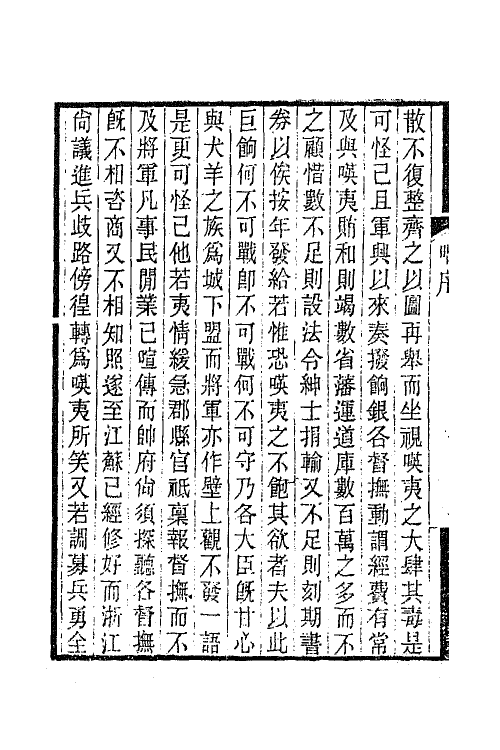 散不復整齊之以圖再舉而坐視㖟夷之大肆其毒是
可怪已且軍興以來奏撥餉銀各督撫動謂經費有常
及與㖟夷賄和則竭數省藩運道庫數百萬之多而不
之顧惜數不足則設法令紳士捐輸又不足則刻期書
劵以俟按年發給若惟恐㖟夷之不飽其欲者夫以此
巨餉何不可戰卽不可戰何不可守乃各大臣旣甘心
與犬羊之族爲城下盟而將軍亦作壁上觀不發一語
是更可怪已他若夷情緩急郡縣官祗稟報督撫而不
及將軍凡事民閒業已喧傳而帥府尙須探聽各督撫
旣不相咨商又不相知照遂至江蘇已經修好而浙江
尙議進兵歧路傍徨轉爲㖟夷所笑又若調募兵勇全